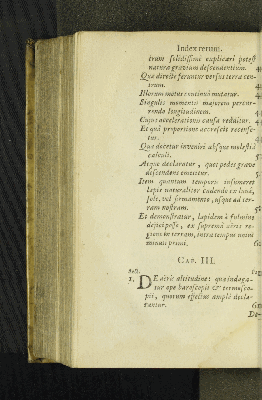 Index rerum.
trum solidissimè explicari potest
natura gravium descendentium.
Qua directè feruntur versus terræ cen-
trum.
Illorum motus continuò mutatur.
Singulis momentis majorem percur-
rendo longitudinem.
Cujus accelerationis causa redditur.
Et qui proportione accrescit recense-
tur.
Quæ docetur inveniri absque molestia
calculi.
Atque declaratur, quot pedes grave
descendens emetitur.
Item quantum temporis insumeret
lapis naturaliter cadendo ex luna,
sole, vel firmamento, usque ad ter-
ram nostram.
Et demonstratur, lapidem à fulmine
dejici posse, ex suprema aëris re-
gione in terram, intra tempus unius
minuti primi.
CAP. III.
1. DE aëris altitudine: quæ indaga-
tur ope baroscopii & thermosco-
pii, quorum effectus amplè decla-
rantur.
De-